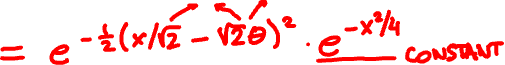 = e^{-\frac{1}{2}(x/\sqrt{2} - \sqrt{2}θ)^2} · e^{-x^2/4} CONSTANT